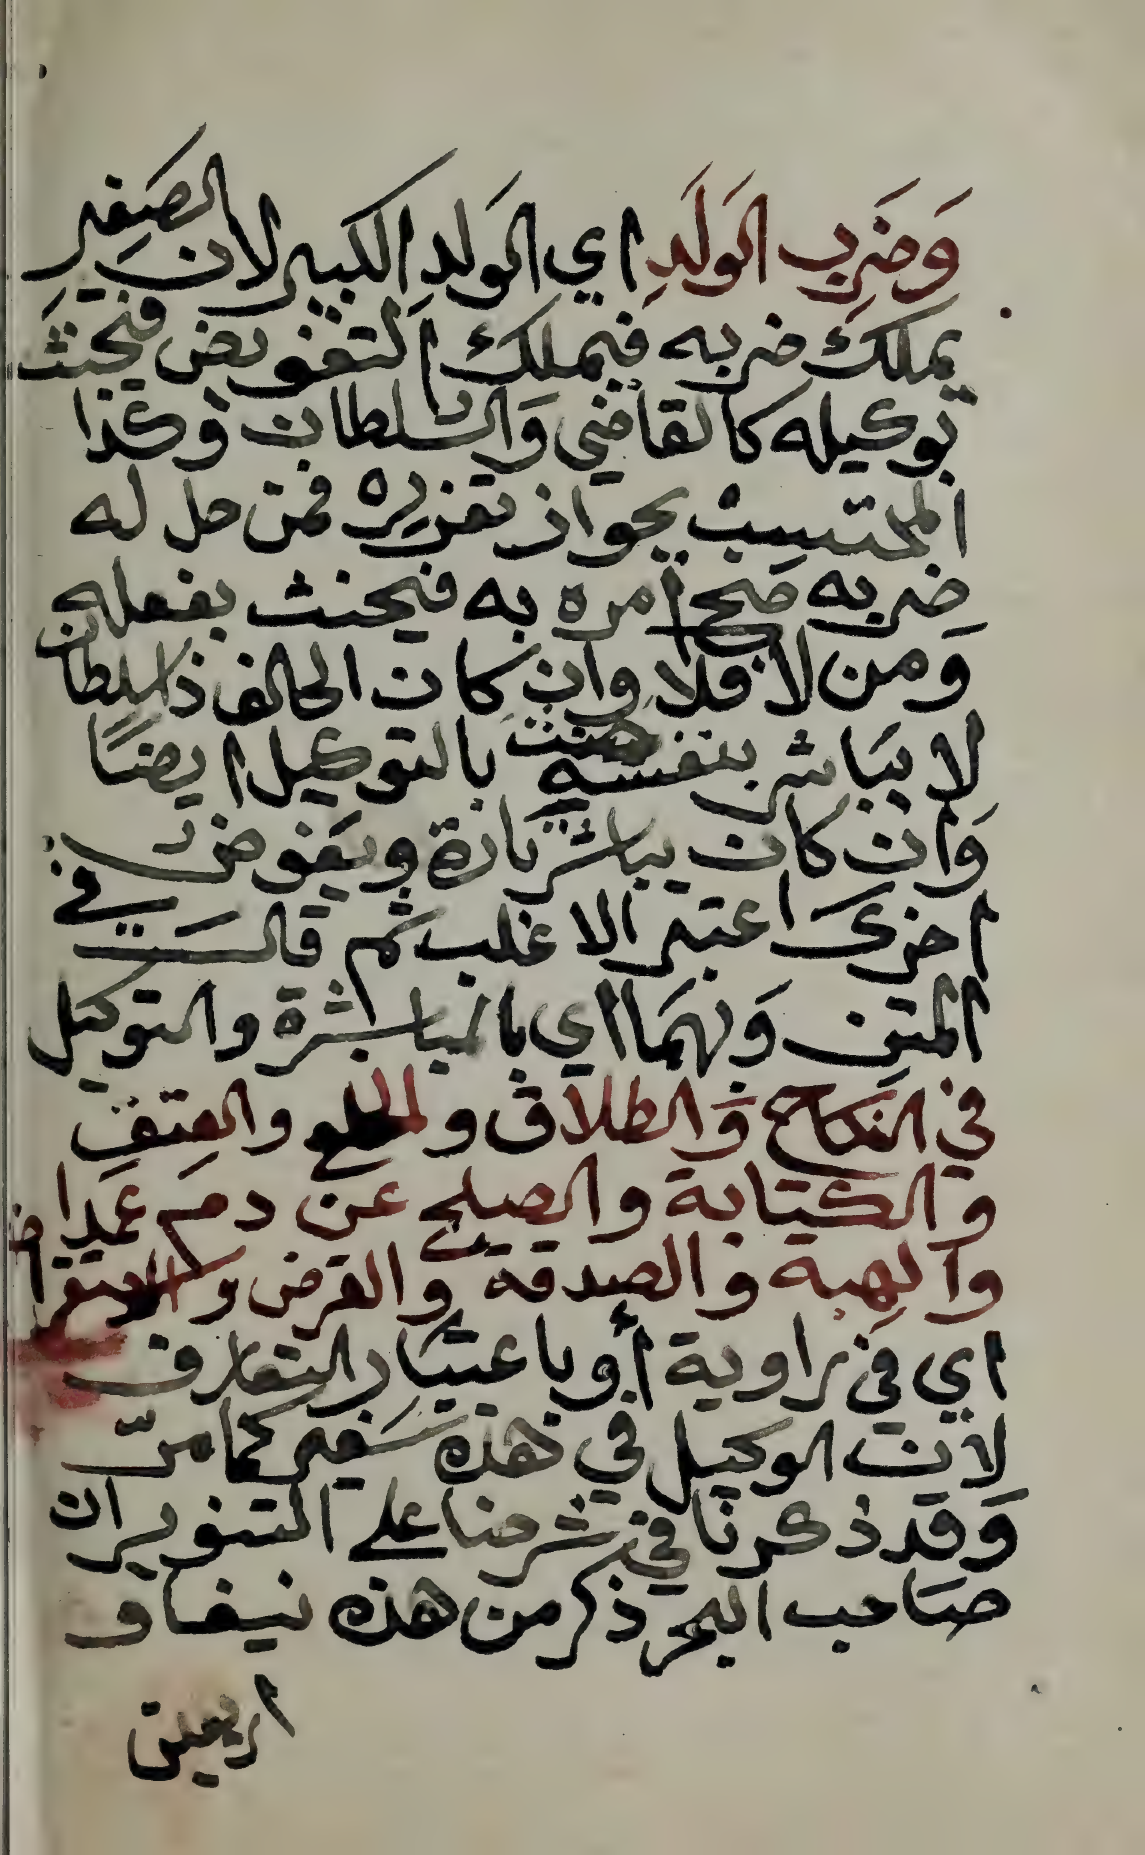 وَضَرب الوَلَدِ اي الوَلد الكبير لان الصَغير
يملك ضربه فيملك التفويض فيحنث
بوكيله كالقاضي وَالسلطان وكذا
المحتسب بجواز تعزيره فمن حل له
ضربه صَح امره به فيحنث بفعله
وَمن لا فلا وان كان الحالف ذا سلطان
لا يبَاشر بنفسه حنث بالتوكيل ايضًا
وَان كان يباشر تارة ويفوض
اخرى اعتبر الاغلب ثم قالت في
المتن وَبهمَا اي بالمباشرة والتوكيل
في النكاح وَالطلاق والخلع والعتق
والكتابة والصلح عَن دم عَمدا
والهبة والصدقة والقرض والاستقراض
اي في راوية أو باعتبَار التعارف
لان الوكيل في هذه سَفير كما مرّ
وَقد ذكرنا في شرحنا على التنوير ان
صَاحب البحر ذكر من هذه نيفا و
اربعين